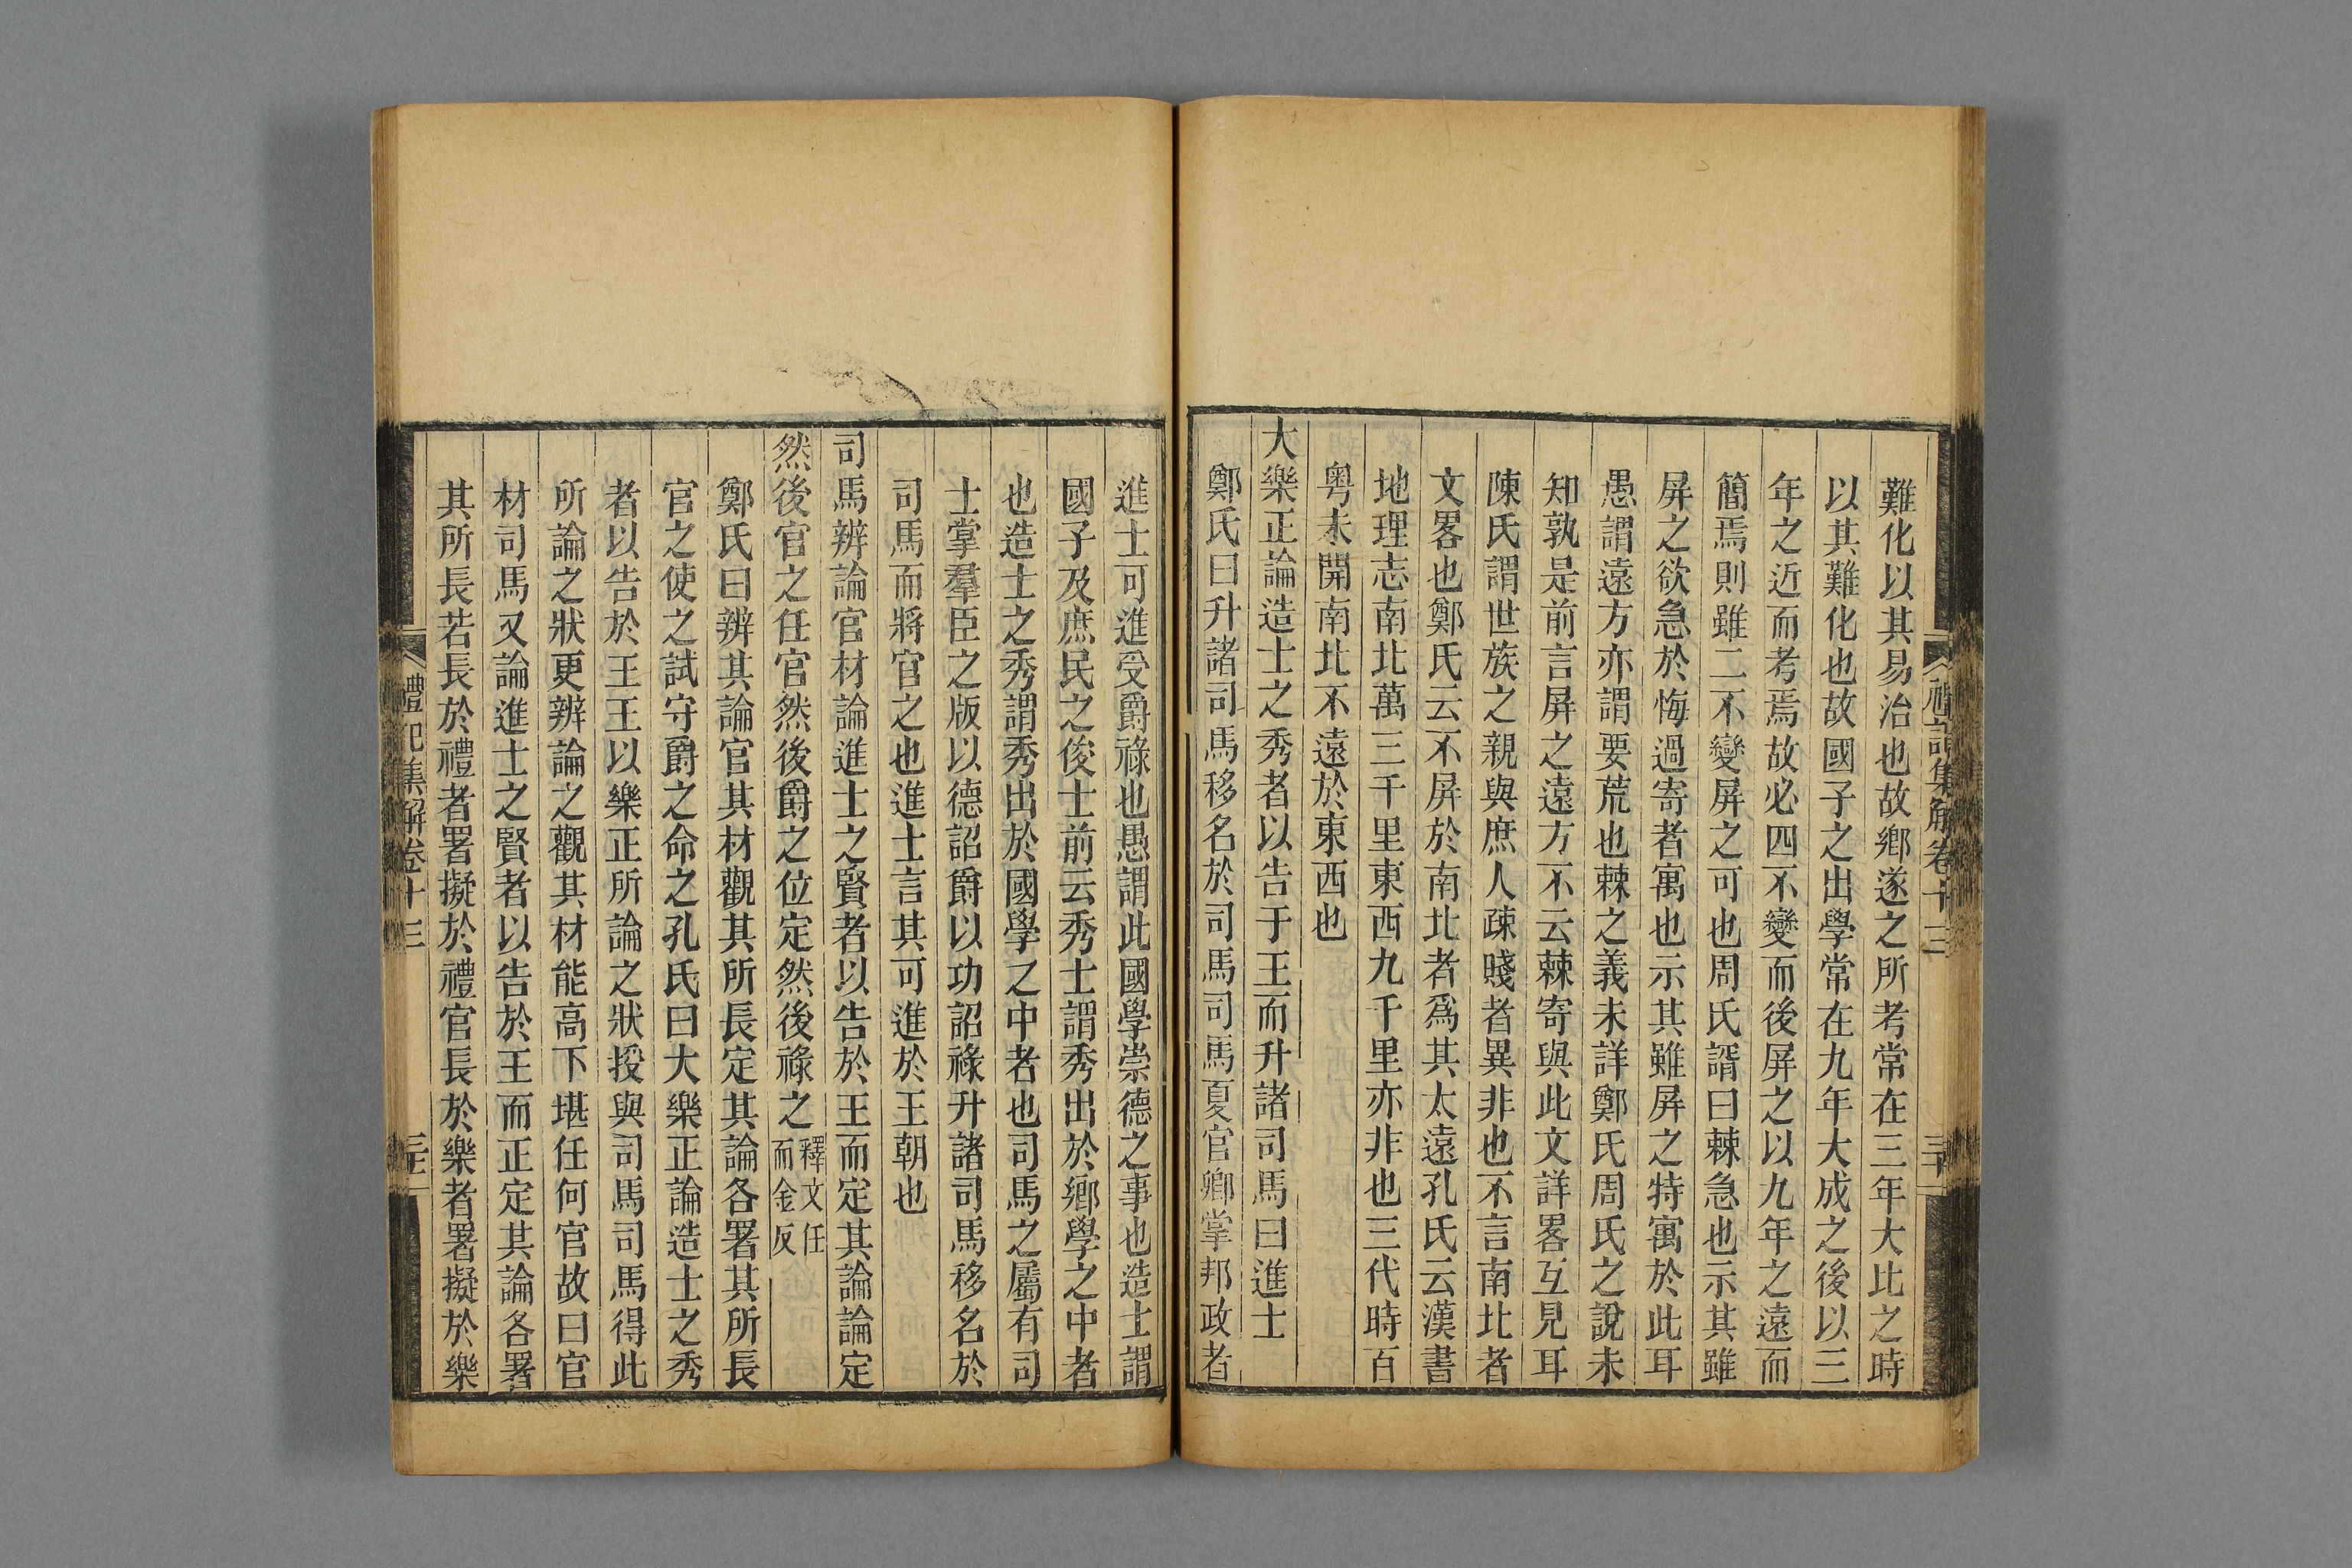 難化以其易治也故鄉遂之所考常在三年大比之時
以其難化也故國子之出學常在九年大成之後以三
年之近而考焉故必四不變而後屏之以九年之遠而
簡焉則雖二不變屏之可也周氏諝曰棘急也示其雖
屏之欲急於悔過寄者寓也示其雖屏之特寓於此耳
愚謂遠方亦謂要荒也棘之義未詳鄭氏周氏之說未
知孰是前言屏之遠方不云棘寄與此文詳畧互見耳
陳氏謂世族之親與庶人疎賤者異非也不言南北者
文畧也鄭氏云不屏於南北者爲其太遠孔氏云漢書
地理志南北萬三千里東西九千里亦非也三代時百
粵未開南北不遠於東西也
大樂正論造士之秀者以告于王而升諸司馬曰進士
鄭氏曰升諸司馬移名於司馬司馬夏官卿掌邦政者
禮記集解卷十三
三十
進士可進受爵祿也愚謂此國學崇德之事也造士謂
國子及庶民之俊士前云秀士謂秀出於鄉學之中者
也造士之秀謂秀出於國學之中者也司馬之屬有司
士掌羣臣之版以德詔爵以功詔祿升諸司馬移名於
司馬而將官之也進士言其可進於王朝也
司馬辨論官材論進士之賢者以告於王而定其論論定
然後官之任官然後爵之位定然後祿之釋文任
而金反
鄭氏曰辨其論官其材觀其所長定其論各署其所長
官之使之試守爵之命之孔氏曰大樂正論造士之秀
者以告於王王以樂正所論之狀授與司馬司馬得此
所論之狀更辨論之觀其材能高下堪任何官故曰官
材司馬又論進士之賢者以告於王而正定其論各署
其所長若長於禮者署擬於禮官長於樂者署擬於樂
禮記集解卷十三
三十一